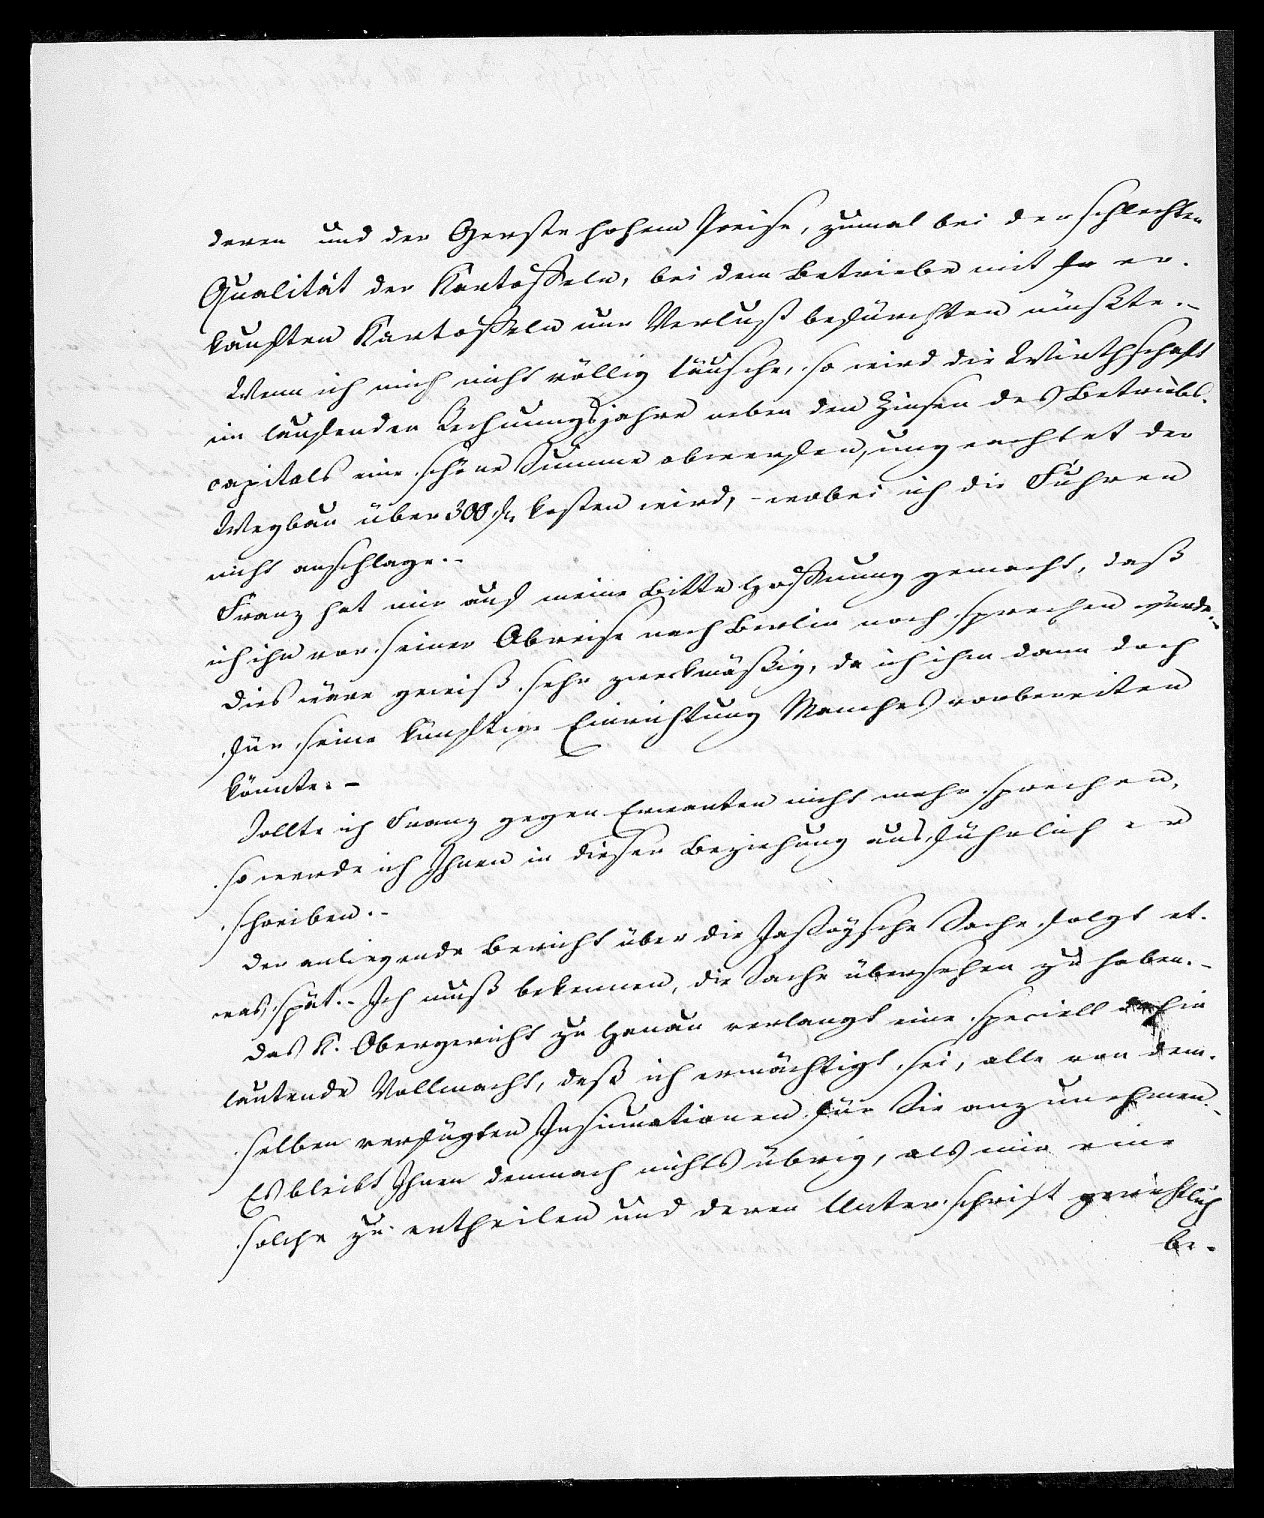 deren und der Gerste hohem Preise, zumal bei der schlechten
Qualität der Kartoffeln, bei dem Betriebe mit er-
kauften Kartoffeln nur Verlust befürchten müßte.-
Wenn ich mich nicht völlig täusche, so wird die Wirthschaft
im laufenden Rechnungsjahre neben den Zinsen des Betriebs-
capitals eine schöne Summe abwerfen, ungeachtet der
Wegbau über 300 kosten wird, - wobei ich die Fuhren
nicht anschlage.-
Franz hat mir auf meine Bitte Hoffnung gemacht, daß
ich ihn vor seiner Abreise nach Berlin noch sprechen würde.-
Dies wäre gewiß sehr zweckmäßig, da ich ihm dann doch
für seine künftige Einrichtung Manches vorbereiten
könnte.-
Sollte ich Franz gegen Erwarten nicht mehr sprechen,
so werde ich Ihnen in dieser Beziehung ausführlicher
schreiben.-
Der anliegende Bericht über die Jassoysche Sache folgt et-
was spät.- Ich muß bekennen, die Sache übersehen zu haben.-
Das K. Obergericht zu Hanau verlangt eine speciell dahin
lautende Vollmacht, daß ich ermächtigt sei, alle von dem-
selben verfügten Insinuationen für Sie anzunehmen.-
Es bleibt Ihnen demnach nichts übrig, als mir eine
solche zu ertheilen und deren Unterschrift gerichtlich
be-